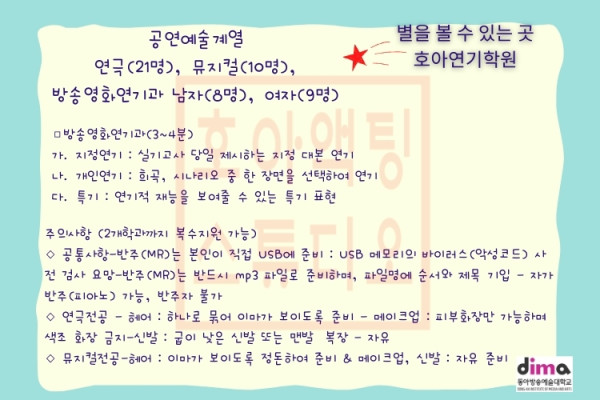 공연예술계열
연극(21명), 뮤지컬(10명),
방송영화연기과 남자(8명), 여자(9명)
별을 볼 수 있는 곳
호아연기학원
□방송영화연기과(3~4분)
가. 지정연기 : 실기고사 당일 제시하는 지정 대본 연기
나. 개인연기 : 희곡, 시나리오 중 한 장면을 선택하여 연기
다. 특기 : 연기적 재능을 보여줄 수 있는 특기 표현
호아액팅
스튜디오
주의사항 (2개학과까지 복수지원 가능)
◇ 공통사항-반주(MR)는 본인이 직접 USB에 준비 : USB 메모리의 바이러스(악성코드) 사
전 검사 요망-반주(MR)는 반드시 mp3 파일로 준비하며, 파일명에 순서와 제목 기입 - 자가
반주(피아노) 가능, 반주자 불가
◇ 연극전공 - 헤어 : 하나로 묶어 이마가 보이도록 준비 - 메이크업 : 피부화장만 가능하며
색조 화장 금지-신발 : 굽이 낮은 신발 또는 맨발 복장 - 자유
◇ 뮤지컬전공-헤어 : 이마가 보이도록 정돈하여 준비 & 메이크업, 신발 : 자유 준비
dima
동아방송예술대학교